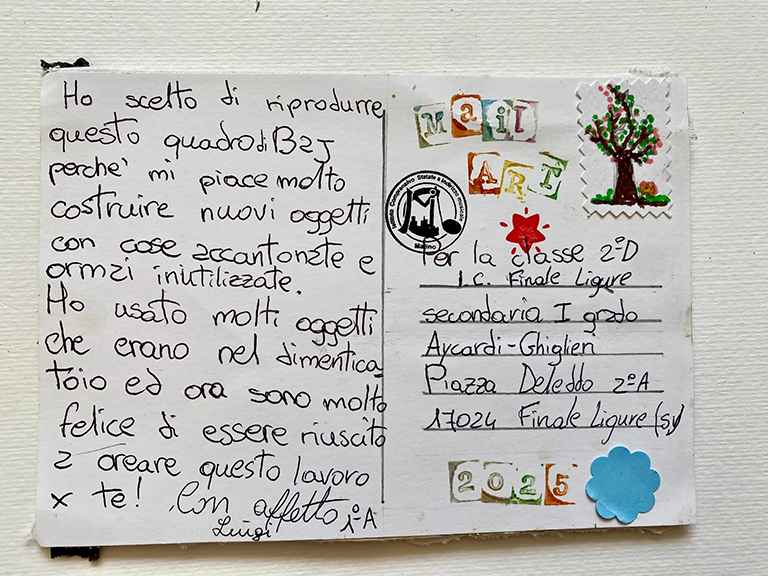 Ho scelto di riprodurre
questo quadro di BZJ
perche' mi piace molto
costruire nuovi oggetti
con cose accantonate e
ormai inutilizzate.
Ho usato molti oggetti
che erano nel dimentica-
toio ed ora sono molto
felice di essere riuscito
a creare questo lavoro
x te! Con affetto 1ºA
Luigi
MaiL
ART
Per la classe 2ºD
I.C. Finale Ligure
secondaria I grado
Aycardi-Ghiglieri
Piazza Deleddo 2ºA
17024 Finale Ligure (SV)
2025